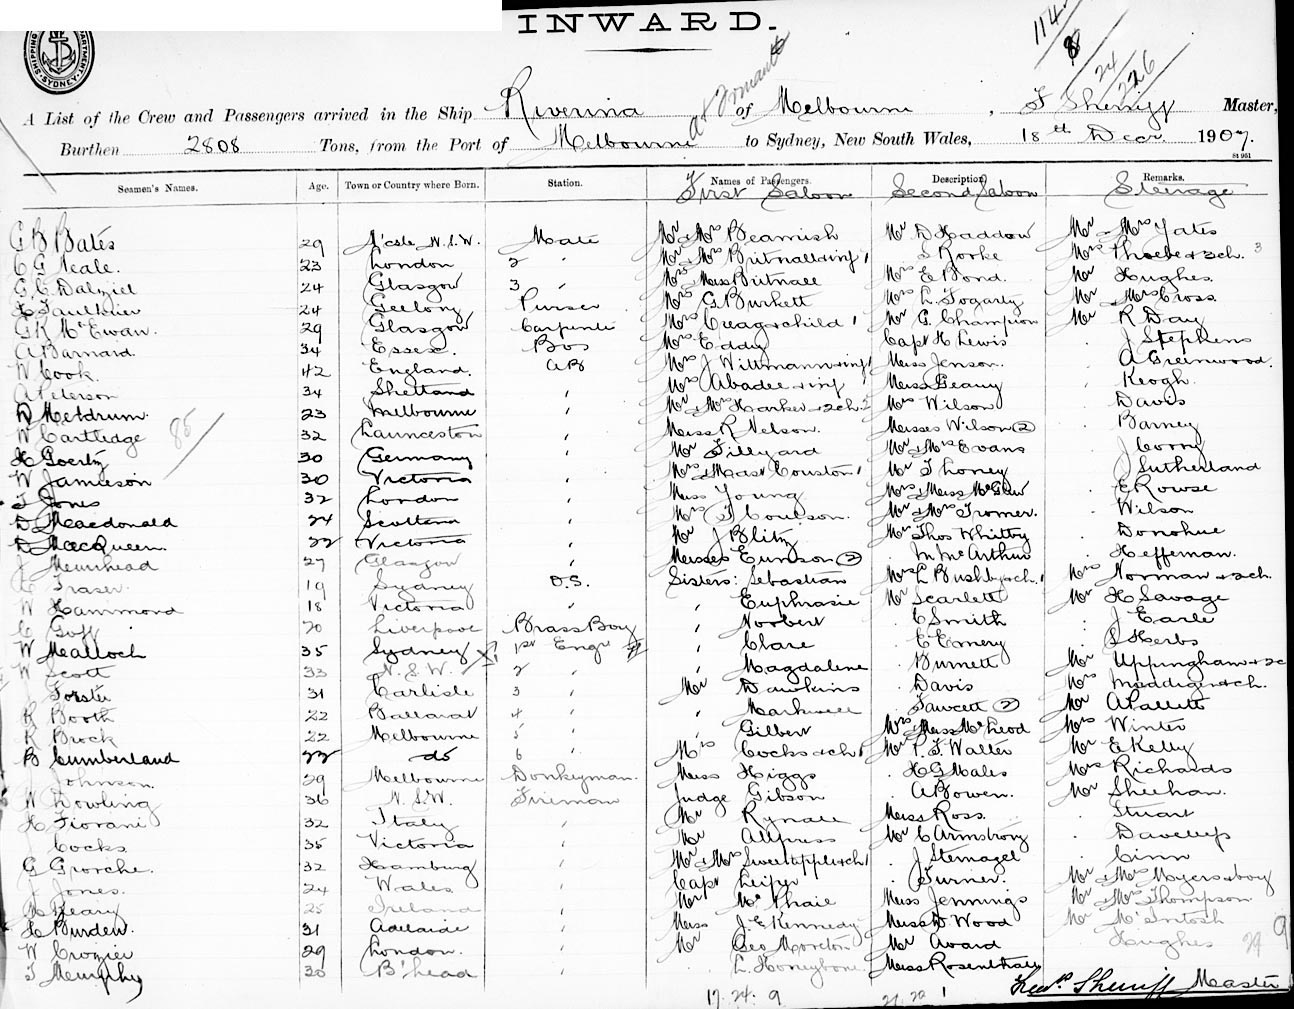 INWARD.
114
8
24
226
SHIPPING DEPARTMENT. SYDNEY
A List of the Crew and Passengers arrived in the Ship Riverina of Melbourne, F Sherriff Master,
Burthen 2808 Tons, from the Port of Melbourne to Sydney, New South Wales, 18th Decr. 1907.
St 951
Seamen's Names. Age. Town or Country where Born. Station. Names of Passengers. Description Remarks.
First Saloon Second Saloon Steerage
G B Bates 29 N'csle N.S.W. Mate Mr & Mrs Beamish Mr D Haddow Mr & Mrs Yates
C G Neale. 23 London 2 " Mr & Mrs Butnall & inf 1 " S Rorke Mrs Phoebe & 3 ch. 3
G C Dalziel 24 Glasgow 3 " Miss Butnall Mrs E Bond. Mr Hughes.
H Faulkner 24 Geelong Purser Mrs G Burkett Mrs L Fogarty Mr & Mrs Cross.
G K McEwan. 29 Glasgow Carpenter Mrs Creag & child 1 Mr G. Champion Mr R Day
A Barnard. 34 Essex. Bos Mrs Eddy Capt H Lewis . J Stephens
W Cook. 42 England. AB Mrs J Wittmann & inf 1 Miss Jenson. . A Greenwood.
A Peterson 34 Shetland " Mrs Abadee & inf Miss Geary . Keogh.
D Meldrum 23 Melbourne " Mr & Mrs Harker & 2 ch. 2 Mrs Wilson . Davis
W Cartledge 32 Launceston " Miss R Nelson. Misses Wilson (2) . Barney
85
H Goertz 30 Germany " Mr Tillyard Mr & Mrs Evans . J Corry
W Jamieson 30 Victoria " Mrs & Mast Couston 1 Mr T Honey . J Sutherland
T Jones 32 London " Miss Young Mrs & Miss McGaw . E Rowse
D Macdonald 24 Scotland " Mrs J Coulson. Mr & Mrs Tromer. . Wilson
D MacQueen. 22 Victoria " Mr J Blitz Mr Thos Whitby . Donohue
J Muirhead 27 Glasgow " Misses Eunson (2) " M McArthur . Heffernan.
C Fraser. 19 Sydney O.S. Sisters: Sebastian Mrs L Bushby & ch. 1 Mrs Norman & 2 ch.
W Hammond 18 Victoria " " Euphrasie Mr Scarlett Mr H Savage
C Goff 20 Liverpool Brass Boy " Norbert . C Smith . J Earle
W Malloch 35 Sydney 1st Engr " Clare . E Emery . S Herbs
W Scott 33 N.S.W. 2 " " Magdalene . Burnett Mr Uppingham & 2c
J Forster 31 Carlisle 3 " Mr Dawkins . Davis Mrs Muddiger & ch.
R Booth 22 Ballarat 4 " " Markwell . Fawcett (2) Mr A Pallett
R Brock 22 Melbourne 5 " " Gilbert Mrs & Miss McLeod Mrs Winter
B Cumberland 22 do 6 " Mrs Cocks & ch 1 Mr P. F. Waller Mr E Kelly
J Johnson. 29 Melbourne Donkeyman. Miss Higgs . H G Males Mrs Richards
W Dowling 36 N.S.W. Fireman Judge Gibson . A Bowen. Mr Sheehan.
H Fiorani 32 Italy " Mr Rynall Miss Ross. . Stuart
J Cocks 35 Victoria " Mr Allpress Mr C Armstrong .
G Grorche. 32 Hamburg " Mr & Mrs Sweetapple & ch 1 . J Sternagel . Cinn
J Jones. 24 Wales " Capt Leifer . Turner. Mr & Mrs Myers & boy
M Geary 25 Ireland " Mr McPhail Miss Jennings Mr & Mrs Thompson
H Burden. 31 Adelaide " Miss J. E. Kennedy Miss D Wood Mr McIntosh
W Crozier 29 London. " Mr Geo Moreton Mr Award . Hughes 29 9
T Murphy 30 B'head " . L Honeybone. Miss Rosenthal
17. 24. 9 21. 22 1 Fredk. Sherriff Master